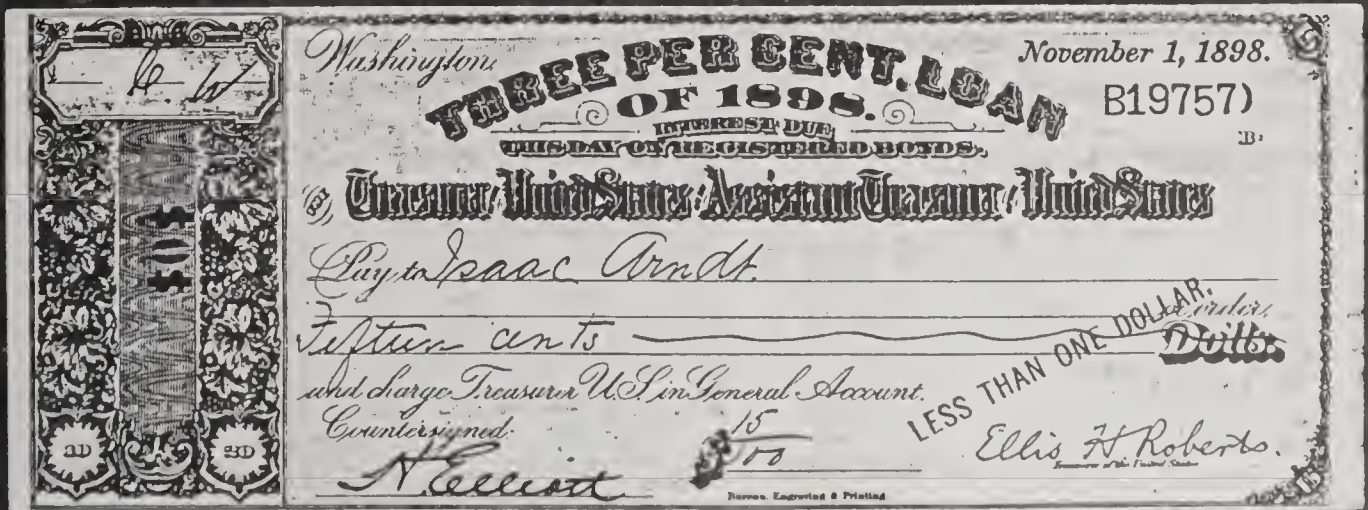 Washington,
November 1, 1898.
THREE PER CENT. LOAN
OF 1898.
B19757)
INTEREST DUE
THIS DAY ON REGISTERED BONDS.
B
Treasurer United States Assistant Treasurer United States
Pay to Isaac Arndt
or order,
Fifteen cents
Dolls.
LESS THAN ONE DOLLAR.
and charge Treasurer U.S. in General Account.
Countersigned:
$ 15/100
N. Elliott
Ellis H Roberts.
Treasurer of the United States
Bureau, Engraving & Printing